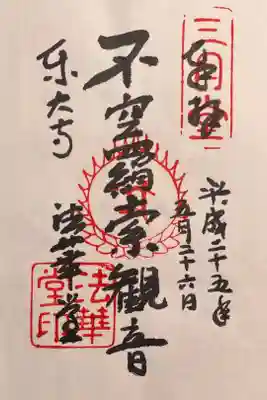 奉拝
三月堂
平成二十五年
五月二十六日
不空羂索觀音
東大寺
法華堂
法華堂印